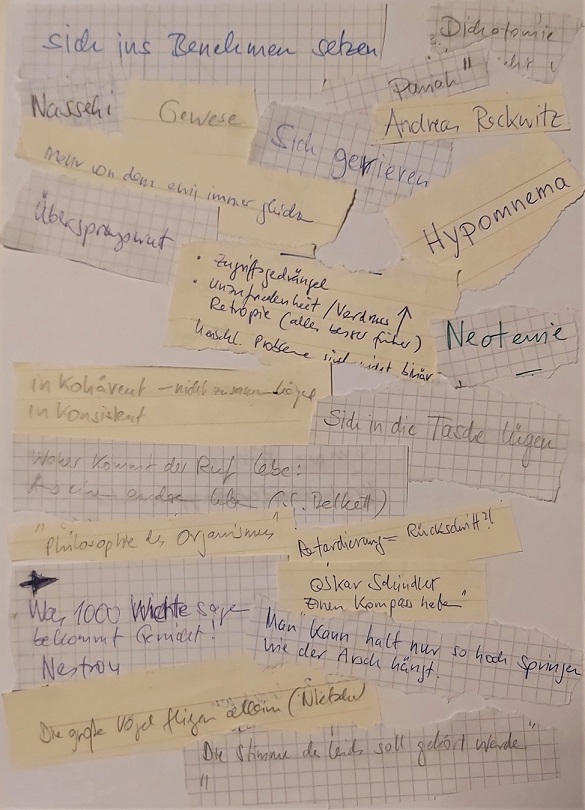 Sich ins Benehmen setzen
Dichotomie
"Pariah"
Nassehi
Gewese
Andreas Reckwitz
Sich gerieren
Mehr von dem ewig immer gleichen
Hypomnema
Übersprungswut
• Zugriffsgedrängel
• Unzufriedenheit / Verdruss ↑
Retropie (alles besser früher)
Probleme sind nicht binär
Neotenie
inkohärent – nicht zusammenhängend
inkonsistent
Sich in die Tasche lügen
Woher kommt der Ruf lebe:
"Philosophie des Organismus"
Retardierung = Rückschritt?!
Oskar Schindler
"Einen Kompass haben"
Was 1000 Wichte sagen
bekommt Gewicht!
Nestroy
Man kann halt nur so hoch springen
wie der Arsch hängt.
Die große Vögel fliegen alleine (Nietzsche)
"Die Stimme des Leids soll gehört werden"